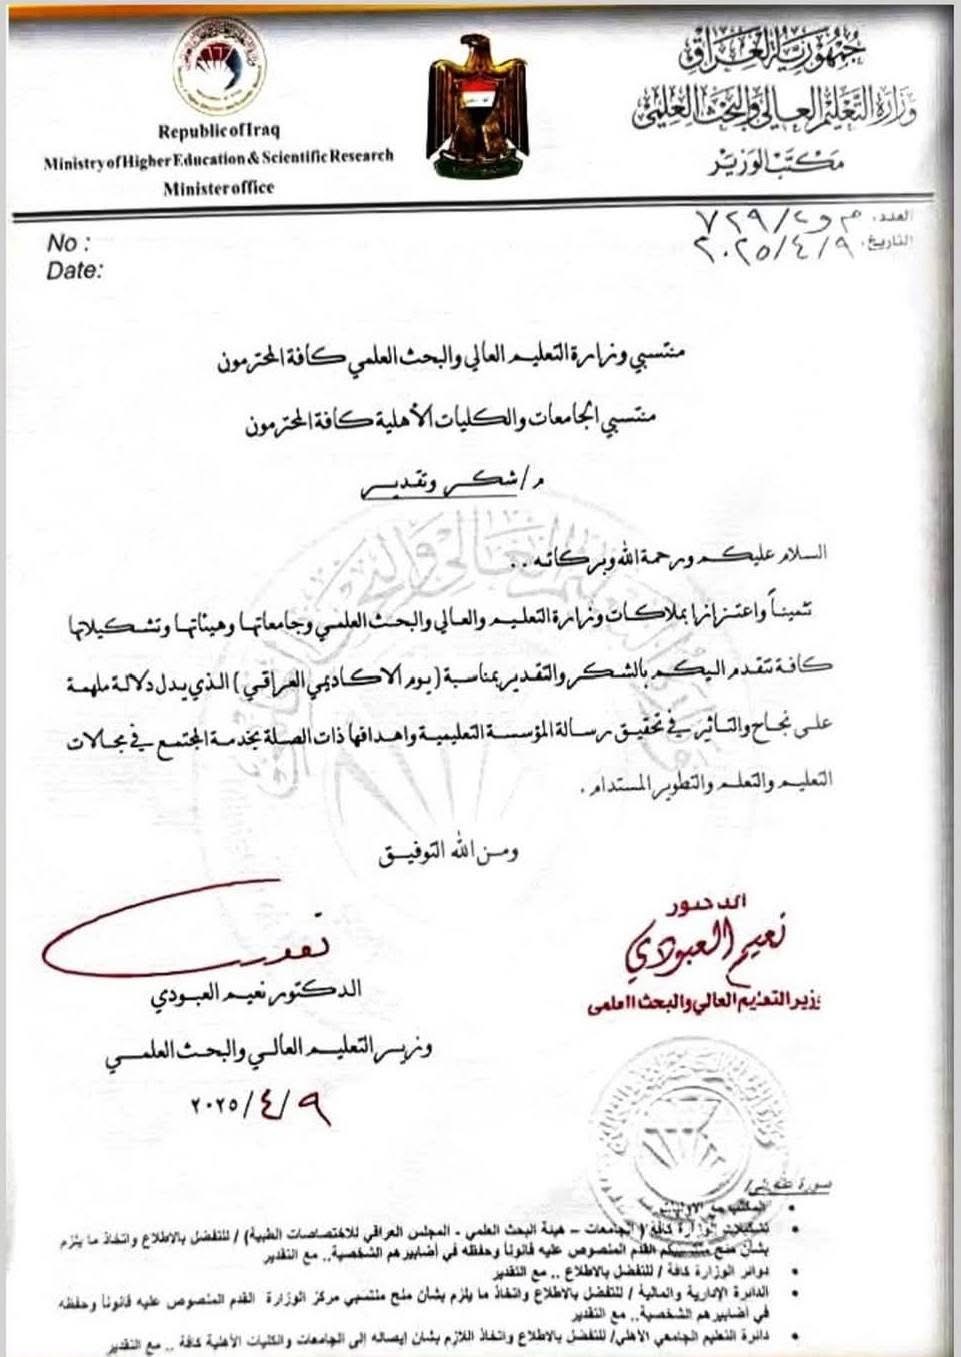 جمهورية العراق
وزارة التعليم العالي والبحث العلمي
مكتب الوزير
Republic of Iraq
Ministry of Higher Education & Scientific Research
Minister office
العدد: م و٢/ ٧٢٩
التاريخ: ٢٠٢٥/٤/٩
No :
Date:
منتسبي وزارة التعليم العالي والبحث العلمي كافة المحترمون
منتسبي الجامعات والكليات الأهلية كافة المحترمون
م/ شكر وتقدير
السلام عليكم ورحمة الله وبركاته ..
تثميناً واعتزازا بملاكات وزارة التعليم والعالي والبحث العلمي وجامعاتها وهيئاتها وتشكيلاتها
كافة نتقدم اليكم بالشكر والتقدير بمناسبة (يوم الاكاديمي العراقي) الذي يدل دلالة ملهمة
على نجاح والتاثير في تحقيق رسالة المؤسسة التعليمية واهدافها ذات الصلة بخدمة المجتمع في مجالات
التعليم والتعلم والتطوير المستدام .
ومن الله التوفيق
الدكتور
نعيم العبودي
وزير التعليم العالي والبحث العلمي
الدكتور نعيم العبودي
وزير التعليم العالي والبحث العلمي
٢٠٢٥/٤/٩
صورة عنه إلى/
المكتب مع الأوليات
تشكيلات الوزارة كافة ( الجامعات – هيئة البحث العلمي - المجلس العراقي للاختصاصات الطبية) / للتفضل بالاطلاع واتخاذ ما يلزم
بشأن منح منتسبيكم القدم المنصوص عليه قانوناً وحفظه في أضابيرهم الشخصية.. مع التقدير
دوائر الوزارة كافة / للتفضل بالاطلاع .. مع التقدير
الدائرة الإدارية والمالية / للتفضل بالاطلاع واتخاذ ما يلزم بشأن منح منتسبي مركز الوزارة القدم المنصوص عليه قانوناً وحفظه
في أضابيرهم الشخصية.. مع التقدير
دائرة التعليم الجامعي الأهلي/ للتفضل بالاطلاع واتخاذ اللازم بشأن إيصاله إلى الجامعات والكليات الأهلية كافة .. مع التقدير